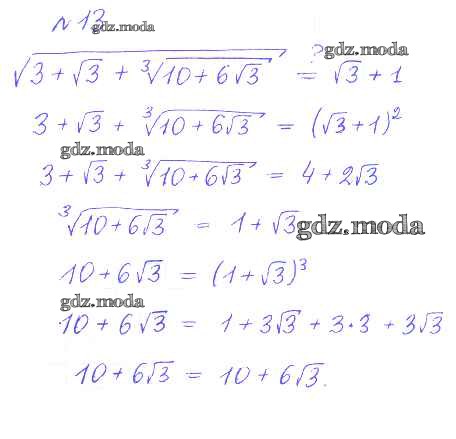 № 13 gdz.moda
√(3 + √3 + ∛(10 + 6√3)) ?= √3 + 1 gdz.moda
3 + √3 + ∛(10 + 6√3) = (√3 + 1)²
gdz.moda
3 + √3 + ∛(10 + 6√3) = 4 + 2√3
∛(10 + 6√3) = 1 + √3 gdz.moda
10 + 6√3 = (1 + √3)³
gdz.moda
10 + 6√3 = 1 + 3√3 + 3·3 + 3√3
10 + 6√3 = 10 + 6√3.